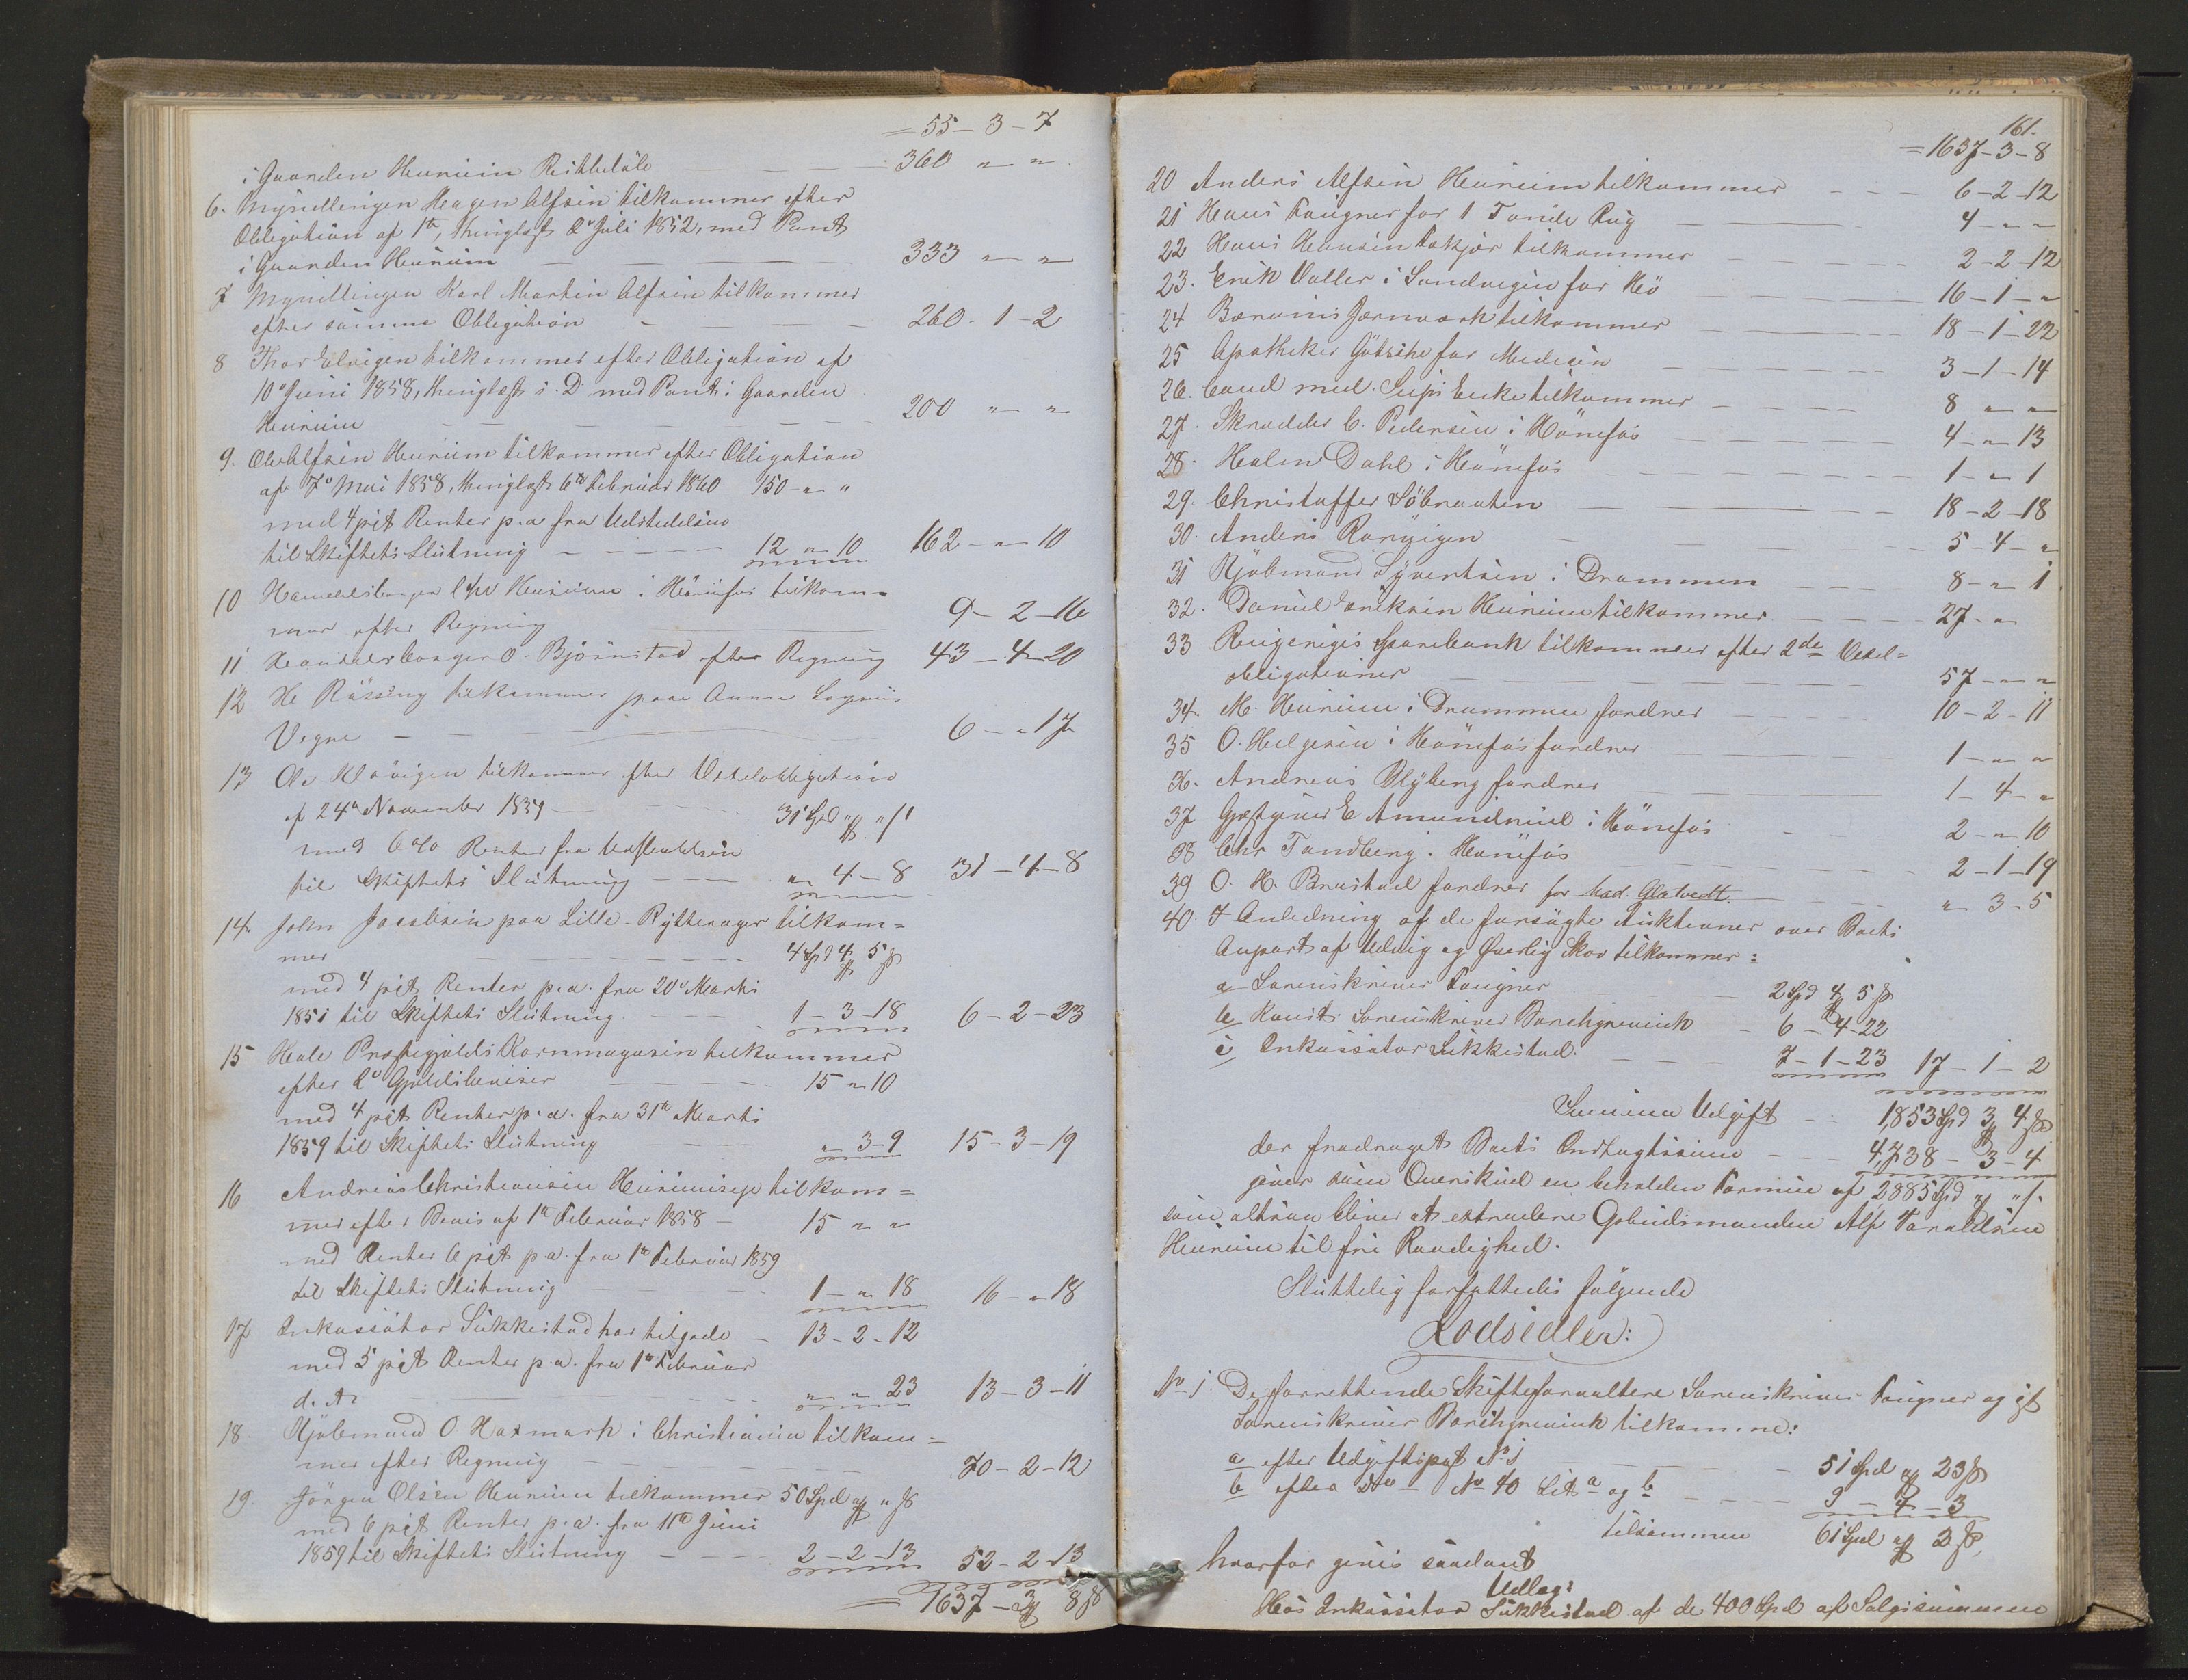 = 55 – 3 – 7
i Gaarden Heurum 360 " "
6. Myndlingen Hagen Alfsen tilkommer efter
Obligation af 1te, thinglæst 2 Juli 1852, med Pant
i Gaarden Heurum 333 " "
7 Myndlingen Karl Martin Alfsen tilkommer
efter samme Obligation 260 – 1 – 2
8 Thor Elvigen tilkommer efter Obligation af
10de Juni 1858, thinglæst s. D. med Pant i Gaarden
Heurum 200 " "
9. Ole Alfsen Heurum tilkommer efter Obligation
af 7de Mai 1858, thinglæst 6te Februar 1860 150 " "
med 4 pCt Renter p.a. fra Udstedelsen
til Skiftets Slutning 12 " 10 162 – " 10
10 Handelsborger Heurum i Hönefos tilkom-
mer efter Regning 9 – 2 – 16
11 Handelsborger O. Björnstad efter Regning 43 – 4 – 20
12 H Rössing tilkommer paa Anne
Vegne 6 – " 17
13 Ole tilkommer efter Vexelobligation
af 24de November 1859 31 Spd " "
med 6 o/o Renter fra Udstedelsen
til Skiftets Slutning " 4 – 8 31 – 4 – 8
14. John Jacobsen paa Lille-Rytterager tilkom=
mer 4 Spd 4 5 ß
med 4 pCt Renter p.a. fra 20de Marts
1851 til Skiftets Slutning 1 – 3 – 18 6 – 2 – 23
15 Hole Præstegjælds Kornmagasin tilkommer
efter 2de Gjeldsbeviser 15 " 10
med 4 pCt Renter p.a. fra 31te Marts
1859 til Skiftets Slutning " 3 – 9 15 – 3 – 19
16 Andreas Christiansen Heurumseje tilkom=
mer efter Bevis af 1te Februar 1858 – 15 " "
med Renter 6 pCt p.a. fra 1te Februar 1859
til Skiftets Slutning 1 – " 18 16 – " 18
17 Inkassator Sukkestad har tilgode – 13 – 2 – 12
med 5 pCt Renter p.a. fra 1te Februar
d. A. " " 23 13 – 3 – 11
18. Kjöbmand O Haxmark i Christiania tilkom=
mer efter Regning 70 – 2 – 12
19. Jörgen Olsen Heurum tilkommer 50 Spd " " ß
med 6 pCt Renter p.a. fra 11te Juni
1859 til Skiftets Slutning 2 – 2 – 13 52 – 2 – 13
= 1637 – 3 8 ß
161.
= 1637 – 3 – 8
20 Anders Alfsen Heurum tilkommer 6 – 2 – 12
21 Hans Fougner for 1 Tönde Rug 4 " "
22 Hans Hansen tilkommer 2 – 2 – 12
23. Erik Valler i Sandvigen for Hö 16 – 1 – "
24 Bærums Jernværk tilkommer 18 – 1 – 22
25 Apotheker Götsche for Medicin 3 – 1 – 14
26. Cand med. tilkommer 8 " "
27. Skrædder C. Pedersen i Hönefos 4 – " 13
28. Halvor Dahl i Hönefos 1 – " 1
29. Christoffer Söbraaten 18 – 2 – 18
30. Anders 5 – 4 – "
31 Kjöbmand Syvertsen i Drammen 8 – " 1
32. Daniel Eriksen Heurum tilkommer 27 – "
33 Ringeriges Sparebank tilkommer efter 2de Vexel=
obligationer 57 – " "
34. M. Heurum i Drammen fordrer 10 – 2 – 11
35 O. Helgesen i Hönefos fordrer 1 – " "
36. Andreas Blyberg fordrer 1 – 4 – "
37 Gjæstgiver E Amundrud i Hönefos 2 – " 10
38 Chr Tandberg i Hönefos 2 – 1 – 19
39 O. H. Brustad fordrer for Mad. Glatvedt. " 3 – 5
40. I Anledning af de forsögte Auktioner over Boets
Anpart af Udvig og Överlig Skov tilkommer:
a Sorenskriver Fougner 2 Spd 4 5 ß
b Konst. Sorenskriver Borchgrevink 6 – 4 – 22
c Inkassator Sukkestad. 7 – 1 – 23 17 – 1 – 2
Summa Udgift 1,853 Spd 3 4 ß
der fradraget Boets Indtægtssum 4,738 – 3 – 4
giver som Overskud en beholden Formue af 2885 Spd " "
som altsaa bliver at extradere Gjebudsmanden Alf Taraldsen
Heurum til fri Raadighed.
Sluttelig forfattedes fölgende
Lodsedler:
No 1. De forrettende Skifteforvaltere Sorenskriver Fougner og cst
Sorenskriver Borchgrevink tilkomme:
a efter Udgiftspost No 1 51 Spd " 23 ß
b efter Do – No 40 Lit a og b 9 – 4 – 3
tilsammen 61 Spd " 2 ß,
hvorfor gives saadant
Udlæg:
Hos Inkassator Sukkestad af de 400 Spd af Salgssummen